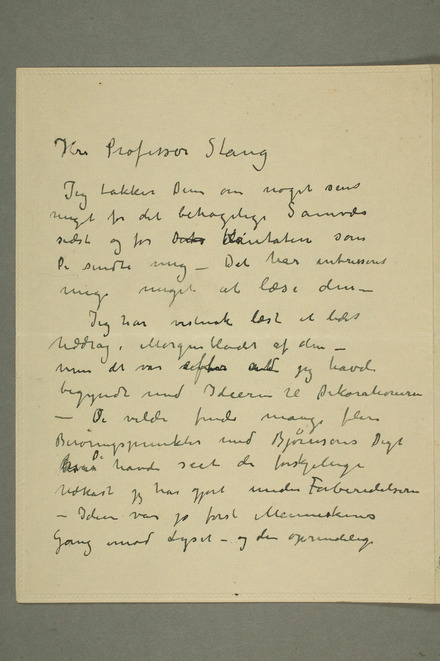 Hr Professor Stang
Jeg takker Dem om noget sent
meget for det behagelige Samvær
sidst og for Kantaten som
De sendte mig – Det har interesseret
mig meget at læse den –
Jeg har vistnok læst et lidet
Uddrag i Morgenbladet af den –
men det var efter at jeg havde
begyndt med Ideerne til Dekorationerne
– De vilde finde mange flere
Berøringspunkter med Bjørnsons Digt
De havde seet de forskjellige
Udkast jeg har gjort under Forberedelsen
– Ideen var jo først Menneskenes
Gang imod Lyset – og den oprindelige